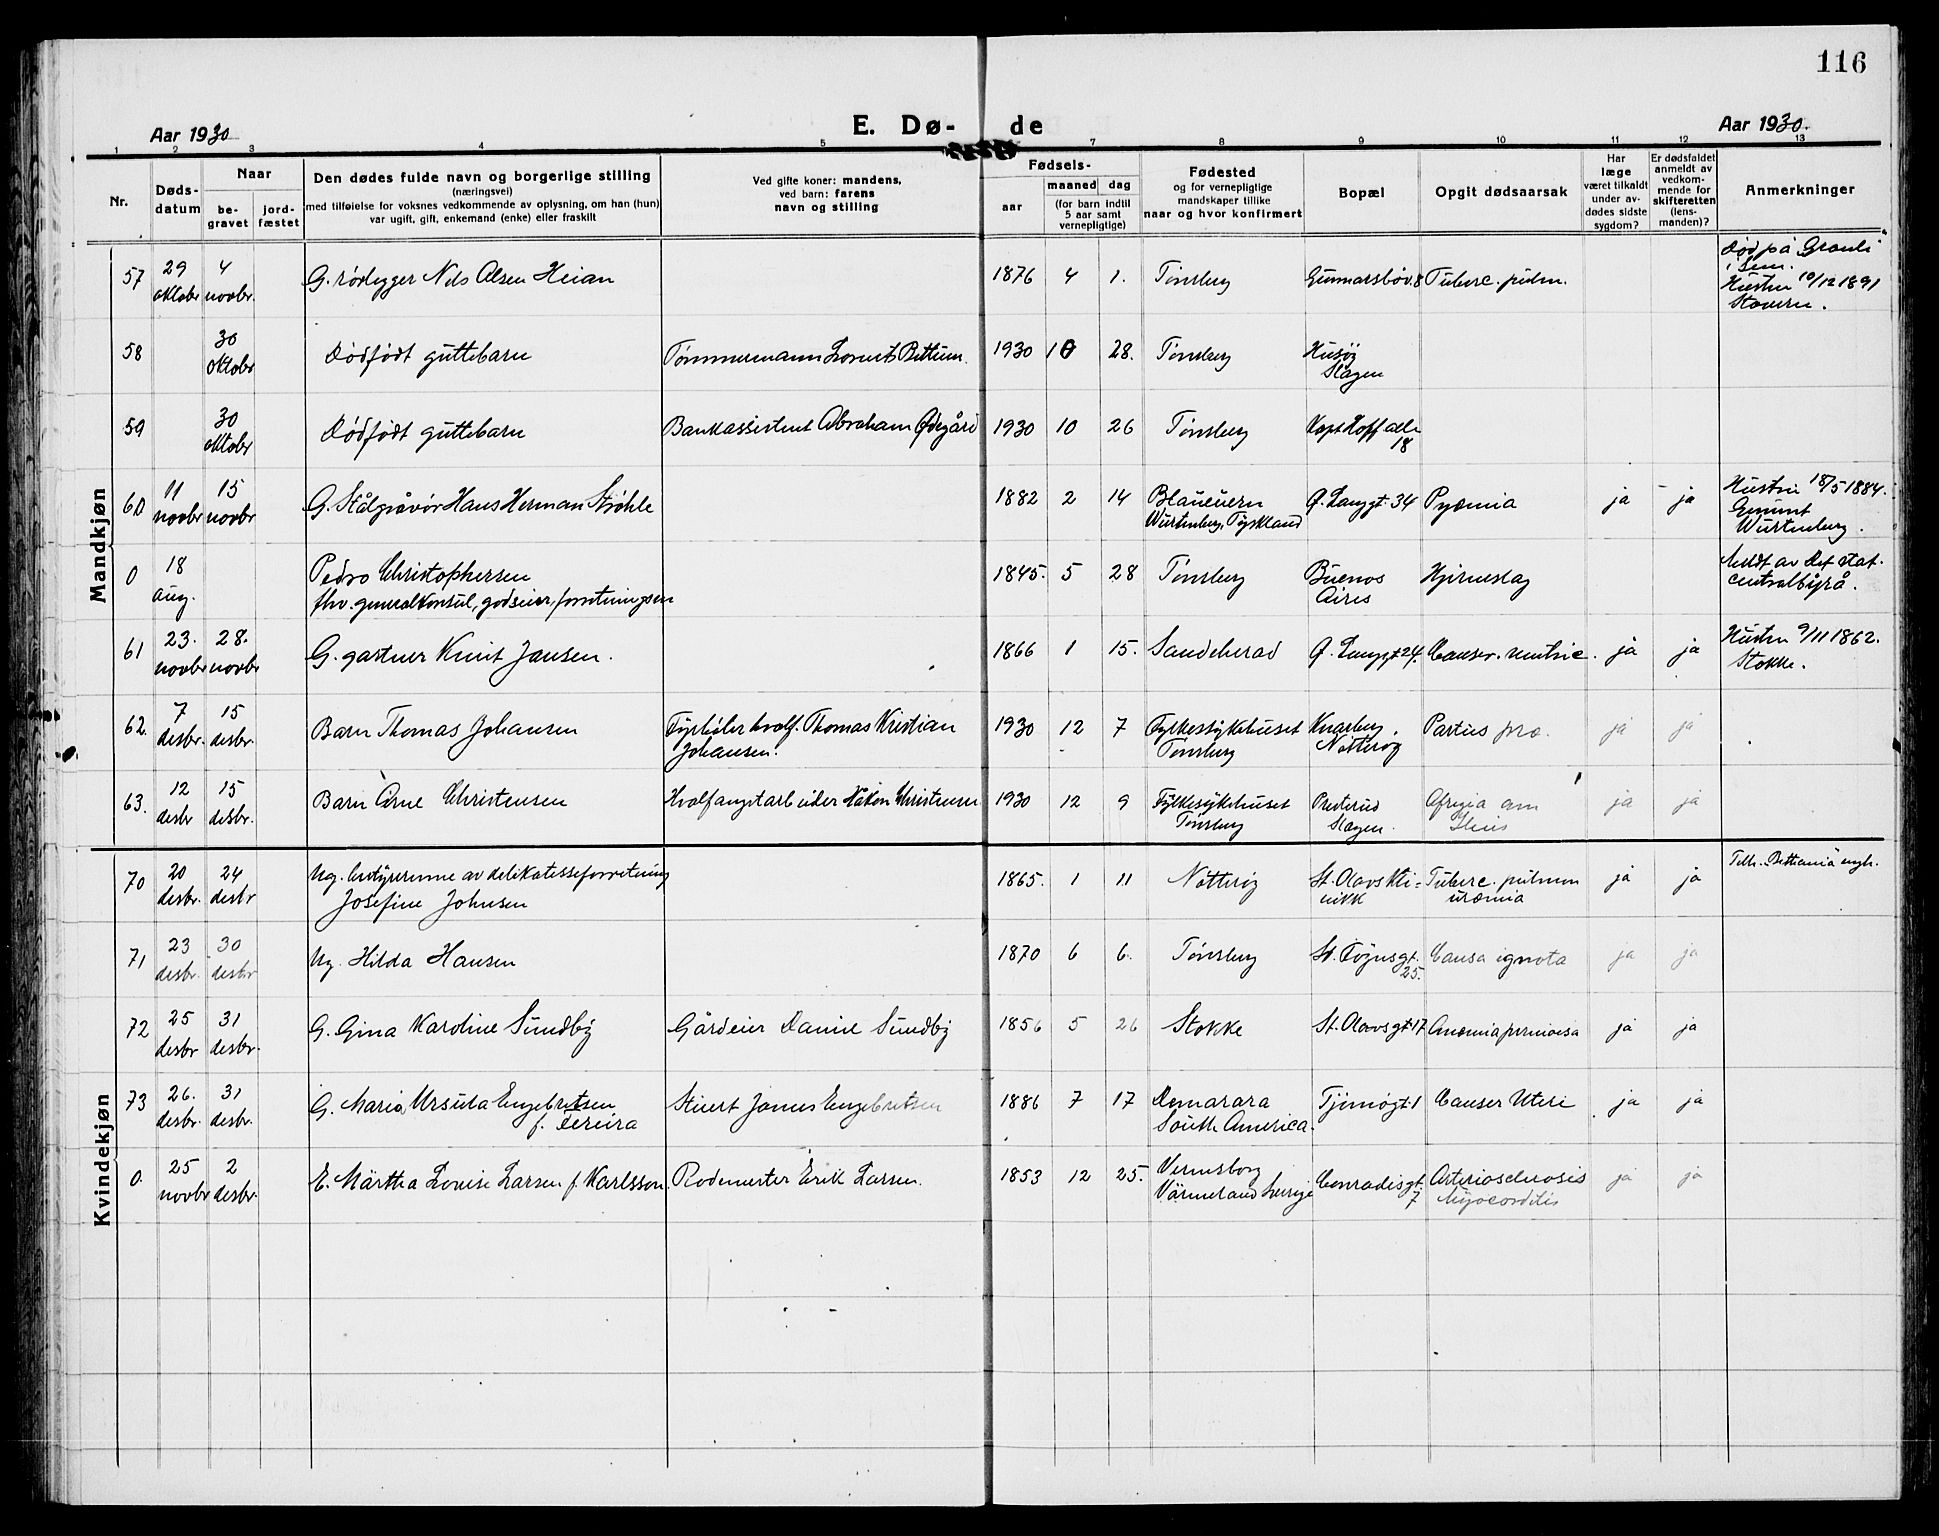 116
Aar 1930
E. Dø-
de
Aar 1930.
1 2 3 4 5 6 7 8 9 10 11 12 13
Nr.
Døds-
datum
Naar
be-
gravet
jord-
fæstet
Den dødes fulde navn og borgerlige stilling
(næringsvei)
med tilføielse for voksnes vedkommende av oplysning, om han (hun)
var ugift, gift, enkemand (enke) eller fraskilt
Ved gifte koner: mandens,
ved barn: farens
navn og stilling
Fødsels-
aar
maaned
dag
(for barn indtil
5 aar samt
vernepligtige)
Fødested
og for vernepligtige
mandskaper tillike
naar og hvor konfirmert
Bopæl
Opgit dødsaarsak
Har
læge
været tilkaldt
under av-
dødes sidste
sygdom?
Er dødsfaldet
anmeldt av
vedkom-
mende for
skifteretten
(lens-
manden)?
Anmerkninger
Mandkjøn
57 29 oktobr 4 novbr. G. rørlegger Nils Olsen Heian 1876 4 1. Tønsberg Gunnarsbøv. 8 Tuberc. pulm. Død på Granli
i Sem.
Hustru 10/12 1891
Stavern.
58 30 oktobr Dødfødt guttebarn Tømmermann Lorents Bettum. 1930 10 28. Tønsberg Husøy
Slagen
59 30 oktobr Dødfødt guttebarn Bankassistent Abraham Ødegård 1930 10 26 Tønsberg Kapt Hoff alle
18
60 11 novbr 15 novbr G. Stålgravør Hans Herman Strøhle 1882 2 14 Blaueuern
Würtenberg, Tyskland Ø. Langgt. 34 Pyæmia ja ja Hustru 18/5 1884.
Gmünt
Würtenberg.
0 18 aug. Pedro Christophersen
fhv. generalkonsul, godseier, forretningsm 1845. 5 28 Tønsberg Buenos
Aires Hjerneslag Meldt av Det stat.
centralbyrå.
61 23. novbr 28. novbr G. gartner Knut Jansen. 1866 1 15. Sandeherad Ø. Langgt 24. Cancer. ventric. ja ja Hustru 9/11 1862.
Stokke.
62. 7 desbr. 15 desbr. Barn Thomas Johansen Fyrbøter hvalf. Thomas Kristian
Johansen. 1930 12 7 Fylkessykehuset
Tønsberg Knarberg,
Nøtterøy Partus præ. ja ja
63. 12 desbr 15 desbr. Barn Arne Christensen Hvalfangstarbeider Håkon Christensen 1930 12 9 Fylkesykehuset
Tønsberg Presterud
Slagen ja ja
Kvindekjøn
70 20 desbr. 24 desbr Ug. bestyrerinne av delikatesseforretning
Josefine Johnsen 1865. 1 11 Nøtterøy St. Olavs kli-
nikk Tuberc. pulmon
uræmia ja ja Tilh. Bethania mgh.
71 23 desbr. 30 desbr Ug. Hilda Hansen 1870 6 6. Tønsberg St. Føynsgt.
25. Causa ignota ja ja
72 25 desbr 31 desbr. G. Gina Karoline Sundby Gårdeier Daniel Sundby 1856 5 26 Stokke St. Olavsgt. 17 Anæmia perniciosa ja ja
73 26. desbr. 31 desbr. G. Maria Ursula Engebretsen
f. Fereira Stuert James Engebretsen 1886 7 17 Demarara
South America. Tjømøgt. 1 Cancer Uteri ja ja
0. 25 novbr 2 desbr. E. Märtha Lovise Larsen f. Karlsson. Rodemester Erik Larsen. 1853 12 25. Vermsborg
Värmeland Sverige Conradisgt.
7 Arteriosclerosis
Myocarditis ja ja